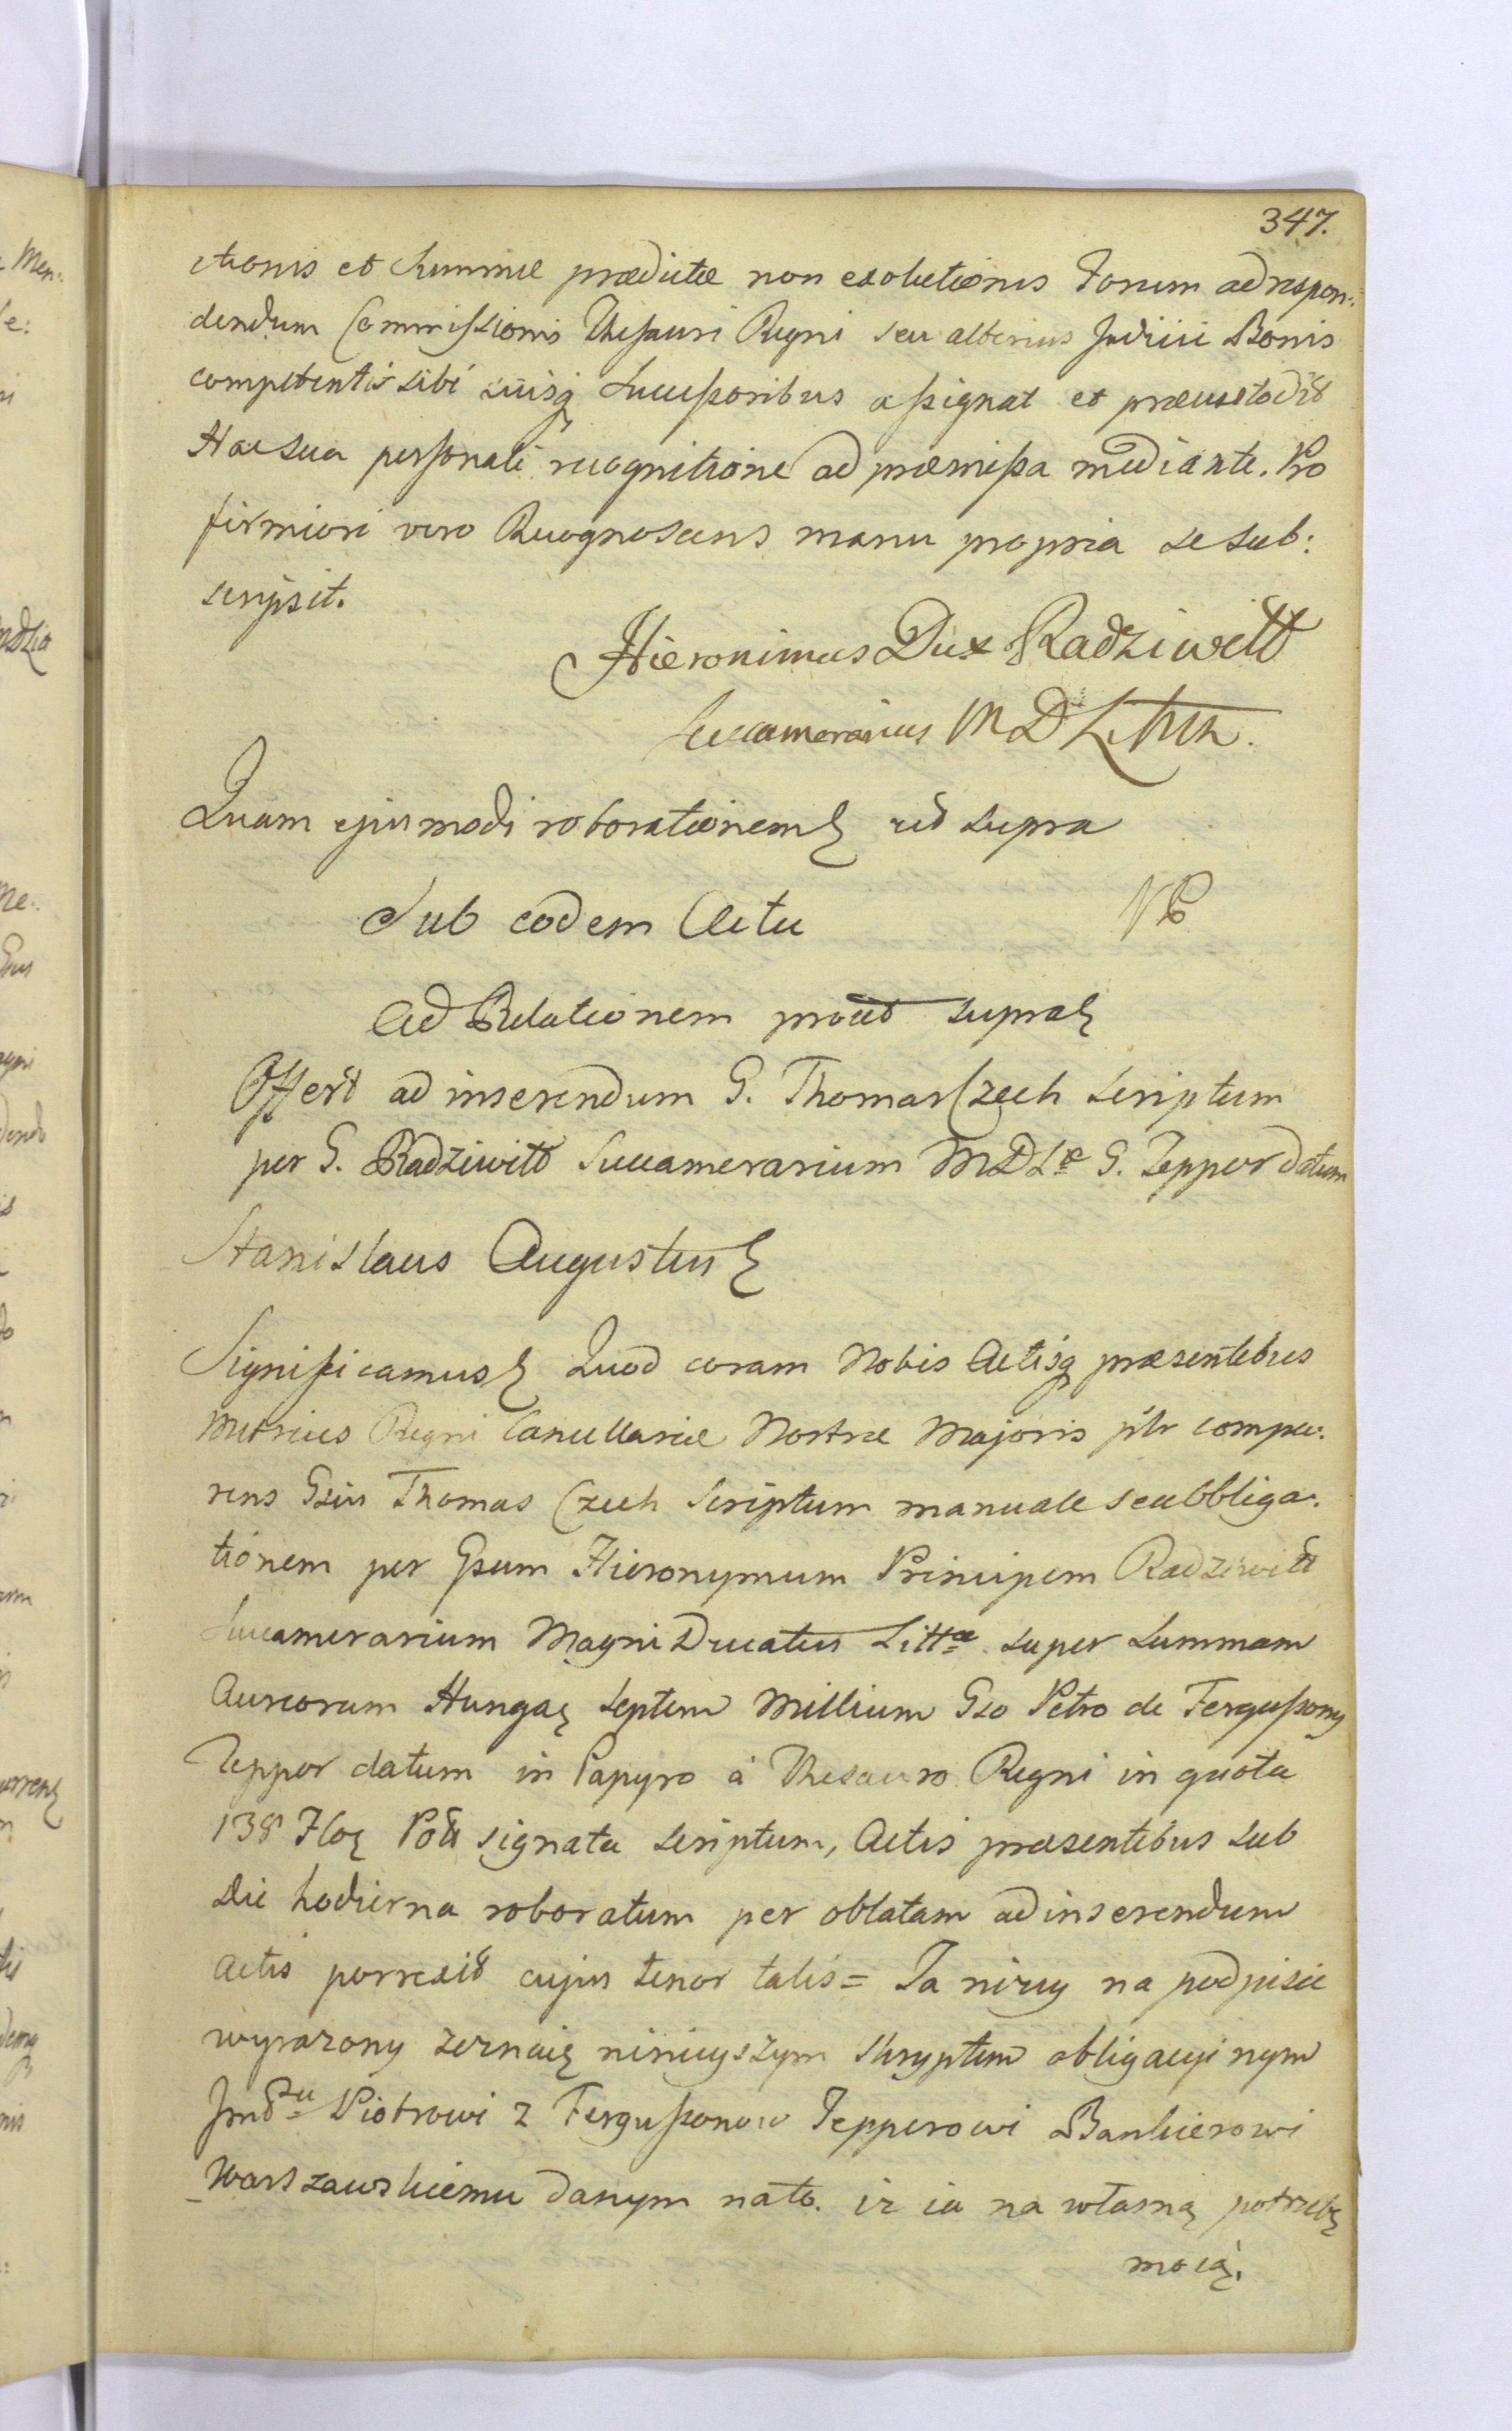 347.
ctionis et Summæ prædictæ non exolutionis Forum ad respon:
dendum Commissionis Thesauri Regni seu alterius Judicii Bonis
competentis sibi suisq Successoribus assignat et præcustodit
Hac sua personali recognitione ad præmissa mediante. Pro
firmiori vero Recognoscens manu propria se sub:
scripsit.
Hieronimus Dux Radziwiłł
Succamerarius MDLithu.
Quam ejusmodi roborationem ut supra
Sub eodem Actu
Ad Relationem prout supra
Offert ad inserendum G. Thomas Czech Scriptum
per G. Radziwiłł Succamerarium MDLæ G. Tepper datum
Stanislaus Augustus
Significamus Quod coram Nobis Actisq præsentibus
Metrices Regni Cancellariæ Nostræ Majoris pltr compa:
rens Gsus Thomas Czech Scriptum manuale seu obliga:
tionem per Gsum Hieronymum Principem Radziwiłł
Succamerarium Magni Ducatus Littæ super Summam
Aureorum Hungar Septem Millium Gso Petro de Fergussony
Tepper datum in Papyro à Thesauro Regni in quota
138 Flor Poll signata scriptum, Actis præsentibus sub
Die hodierna roboratum per oblatam ad inserendum
Actis porrexit cujus tenor talis = Ja nizey na podpisie
wyrazony zeznaię ninieyszym Skryptem obligacyinym
Jmdzu Piotrowi z Fergussonow Tepperowi Bankierowi
Warszawskiemu danym na to. iz ia na własną potrzebę
moią.